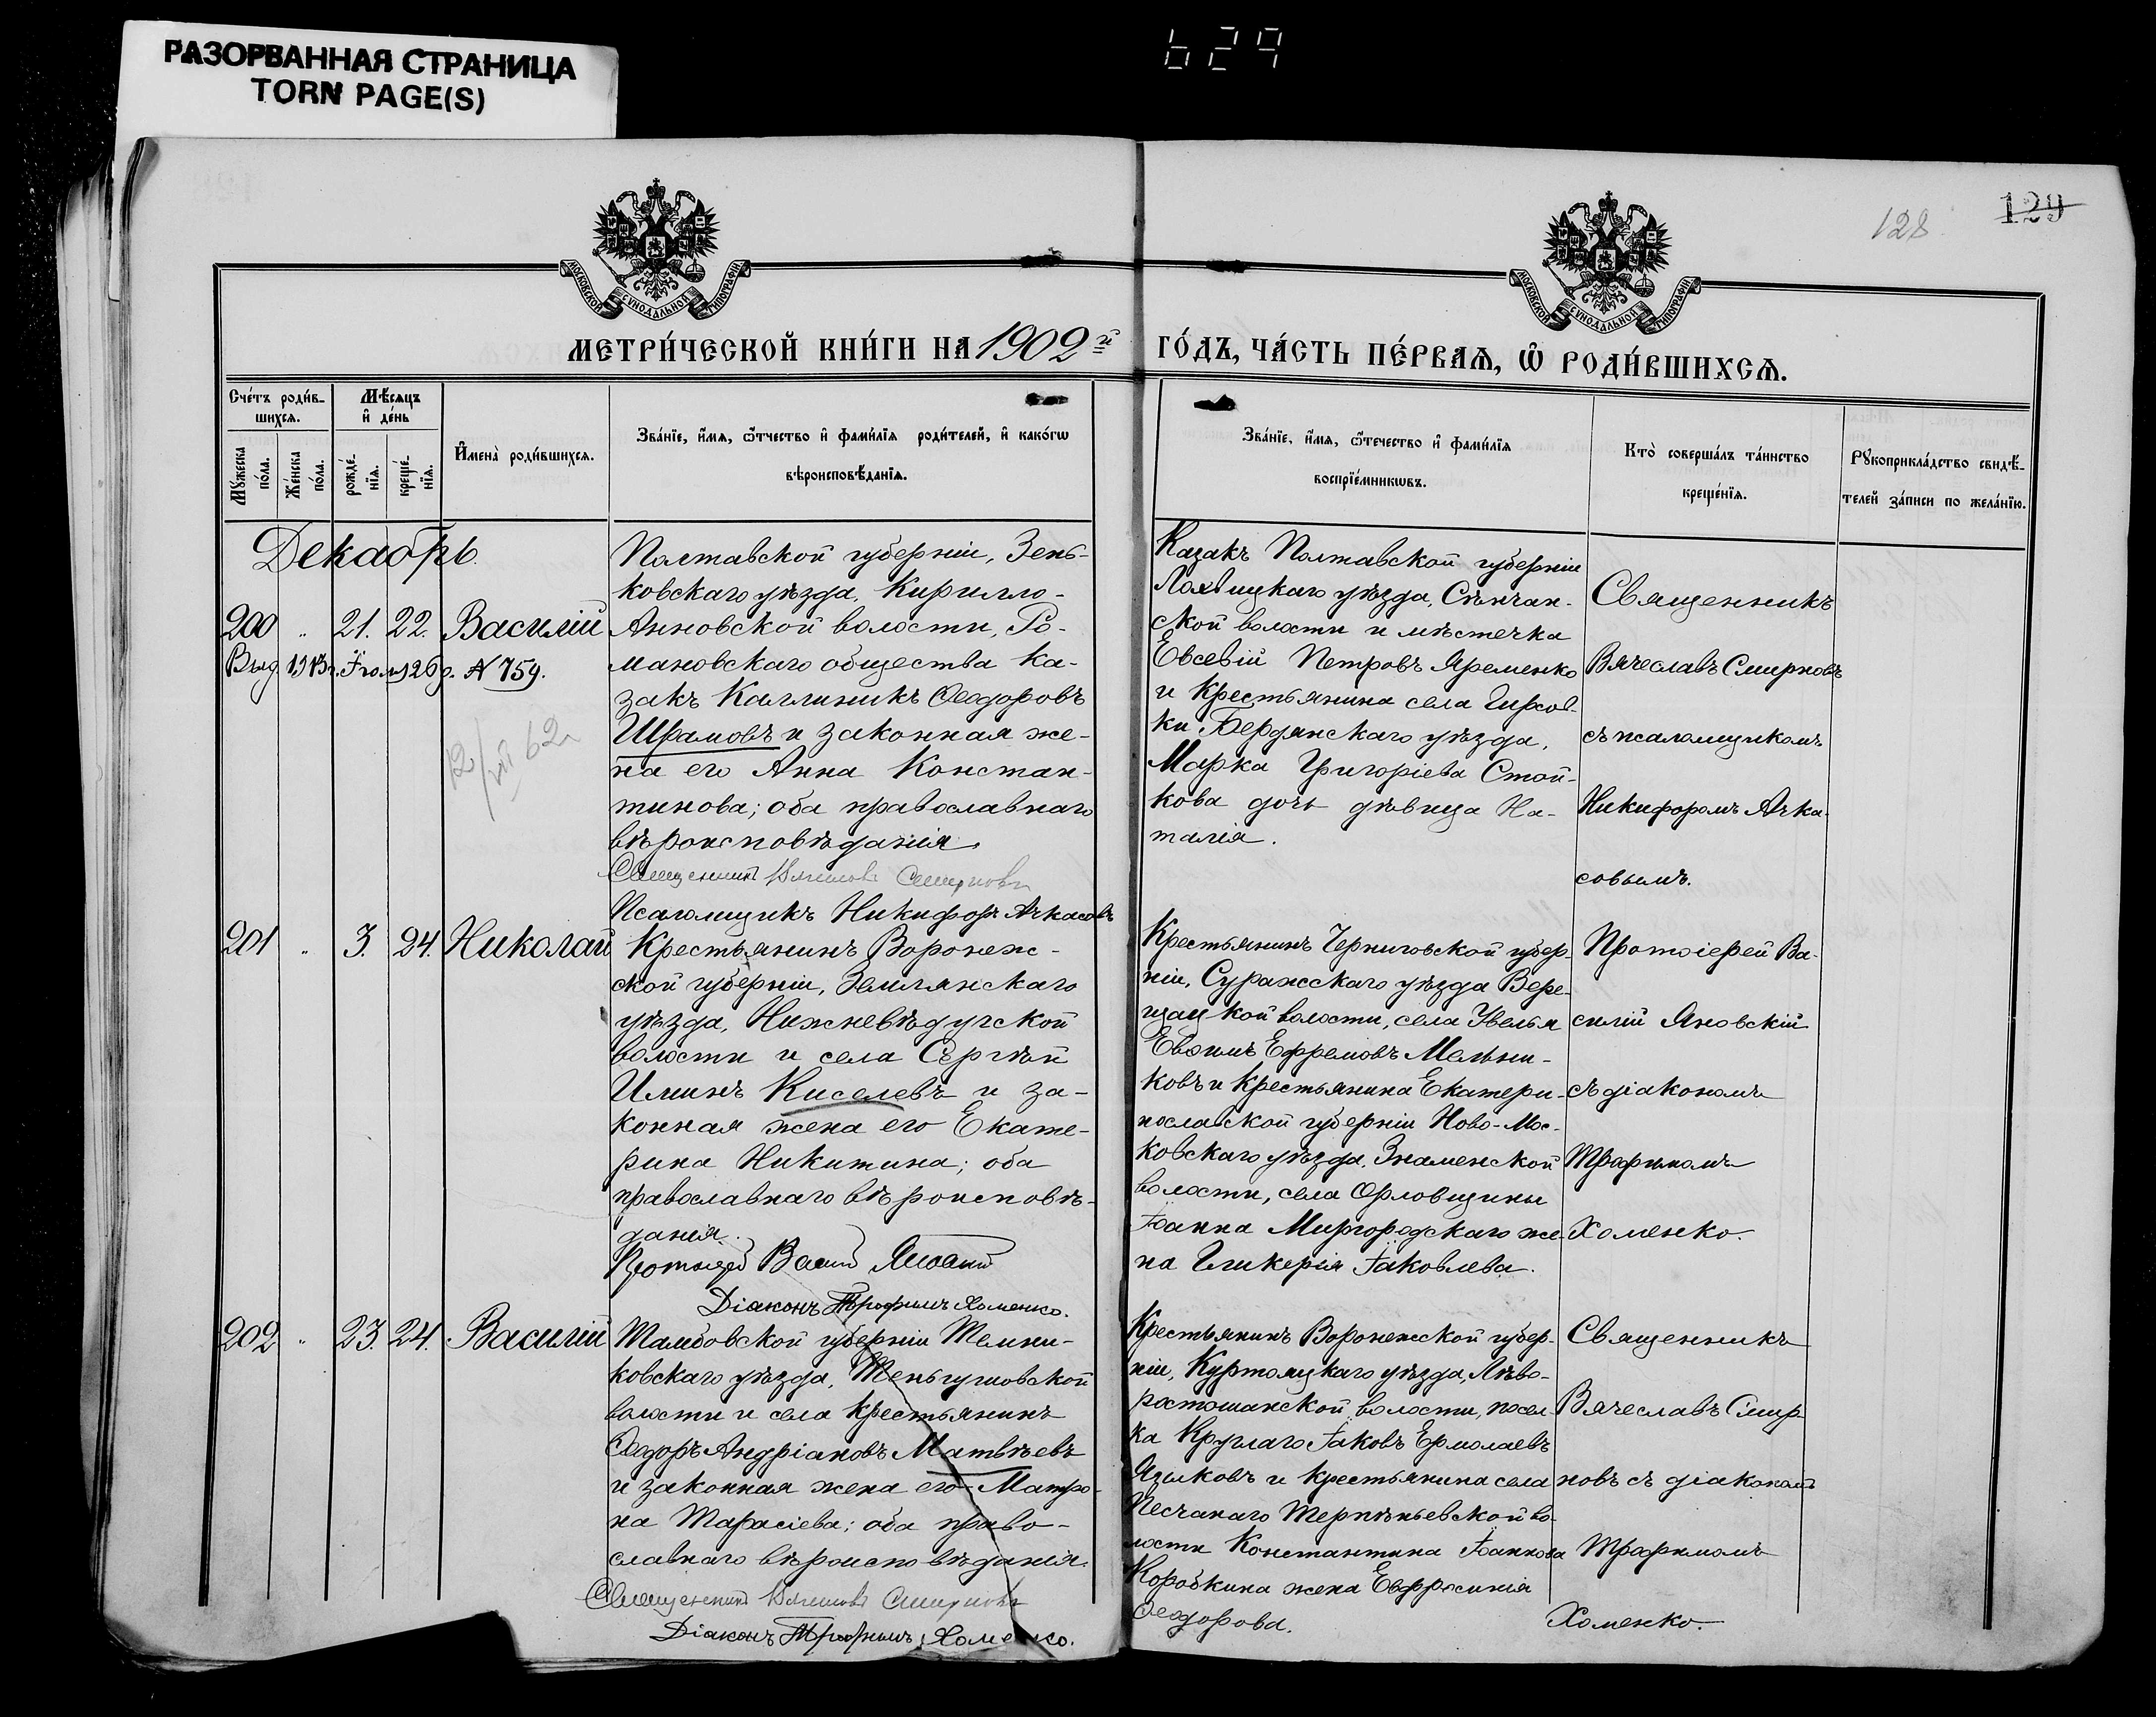 РАЗОРВАННАЯ СТРАНИЦА
TORN PAGE(S)
629
128
129
МОСКОВСКОЙ СУНОДАЛЬНОЙ ТИПОГРАФІИ
МОСКОВСКОЙ СУНОДАЛЬНОЙ ТИПОГРАФІИ
МЕТРИ́ЧЕСКОЙ КНИ́ГИ НА 1902й ГО́ДЪ, ЧА́СТЬ ПЕ́РВАѦ, Ѡ҆ РОДИ́ВШИХСѦ.
Сче́тъ роди́в-
шихсѧ.
Мѣ́сѧцъ
и҆ де́нь
Мꙋ́жеска по́ла.
Же́нска по́ла.
рожде́-
нїѧ.
креще́-
нїѧ.
И҆мена̀ роди́вшихсѧ.
Зва́нїе, и҆́мѧ, ѻ҆́тчество и҆ фами́лїѧ роди́телей, и҆ како́гѡ
вѣроисповѣ́данїѧ.
Зва́нїе, и҆́мѧ, ѻ҆́течество и҆ фами́лїѧ
воспрїе́мникѡвъ.
Кто̀ соверша́лъ та́инство
креще́нїѧ.
Рꙋкоприкла́дство свидѣ́-
телей за́писи по жела́нїю.
Декабрь
200 " 21. 22. Василій
Выд. 1913г. Іюля 26 д. № 759.
12/VII 62г
Полтавской губерніи, Зень-
ковскаго уѣзда, Кирилло-
Анновской волости, Ро-
мановскаго общества ка-
закъ Каллиникъ Ѳеодоровъ
Шрамовъ и законная же-
на его Анна Констан-
тинова; оба православнаго
вѣроисповѣданія.
Священникъ Вячеславъ Смирновъ
Псаломщикъ Никифоръ Ачкасовъ
Казакъ Полтавской губерніи
Лохвицкаго уѣзда, Сѣнчан-
ской волости и мѣстечка
Евсевій Петровъ Яременко
и крестьянина села Гирсов-
ки Бердянскаго уѣзда,
Марка Григоріева Стой-
кова дочь дѣвица На-
талія.
Священникъ
Вячеславъ Смирновъ
съ псаломщикомъ
Никифоромъ Ачка-
совымъ.
201 " 3. 24. Николай
Крестьянинъ Воронеж-
ской губерніи, Землянскаго
уѣзда, Нижневѣдугской
волости и села Сергѣй
Ильинъ Киселевъ и за-
конная жена его Екате-
рина Никитина; оба
православнаго вѣроисповѣ-
данія.
Протоіерей Василій Яновскій
Діаконъ Трофимъ Хоменко.
Крестьянинъ Черниговской губер-
ніи, Суражскаго уѣзда Вере-
щацкой волости, села Увелья
Евѳимъ Ефремовъ Мельни-
ковъ и крестьянина Екатери-
нославской губерніи Ново-Мос-
ковскаго уѣзда, Знаменской
волости, села Орловщины
Іоанна Миргородскаго же-
на Гликерія Іаковлева.
Протоіерей Ва-
силій Яновскій
съ діакономъ
Трофимомъ
Хоменко.
202 " 23. 24. Василій
Тамбовской губерніи Темни-
ковскаго уѣзда, Теньгушовской
волости и села крестьянинъ
Ѳеодоръ Андріановъ Матвѣевъ
и законная жена его Матро-
на Тарасіева; оба право-
славнаго вѣроисповѣданія.
Священникъ Вячеславъ Смирновъ
Діаконъ Трофимъ Хоменко.
Крестьянинъ Воронежской губер-
ніи, Куртояцкаго уѣзда, Лѣво-
ростошанской волости, посел-
ка Круглаго Іаковъ Ермолаевъ
Языковъ и крестьянина села
Песчанаго Терпѣньевской во-
лости Константина Іоаннова
Коробкина жена Евфросинія
Ѳеодорова.
Священникъ
Вячеславъ Смир-
новъ съ діакономъ
Трофимомъ
Хоменко.